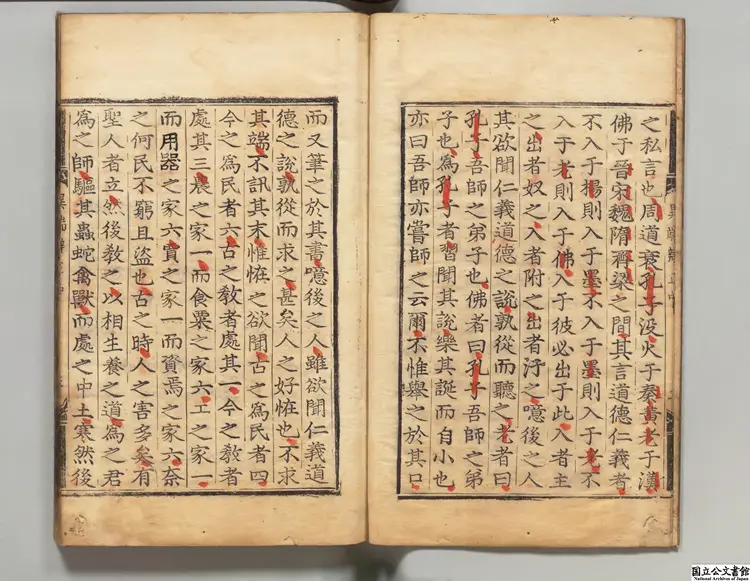 之私言也周道衰孔子没火于秦黄老于漢
佛于晉宋魏隋齊梁之間其言道德仁義者
不入于楊則入于墨不入于墨則入于老不
入于老則入于佛入于彼必出于此入者主
之出者奴之入者附之出者汙之噫後之人
其欲聞仁義道德之說孰從而聽之老者曰
孔子吾師之弟子也佛者曰孔子吾師之弟
子也為孔子者習聞其說樂其誕而自小也
亦曰吾師亦嘗師之云爾不惟舉之於其口
而又筆之於其書噫後之人雖欲聞仁義道
德之說孰從而求之甚矣人之好怪也不求
其端不訊其末惟怪之欲聞古之為民者四
今之為民者六古之教者處其一今之教者
處其三農之家一而食粟之家六工之家一
而用器之家六賈之家一而資焉之家六奈
之何民不窮且盜也古之時人之害多矣有
聖人者立然後教之以相生養之道為之君
為之師驅其蟲蛇禽獸而處之中土寒然後
異端辨
國立公文書館
National Archives of Japan